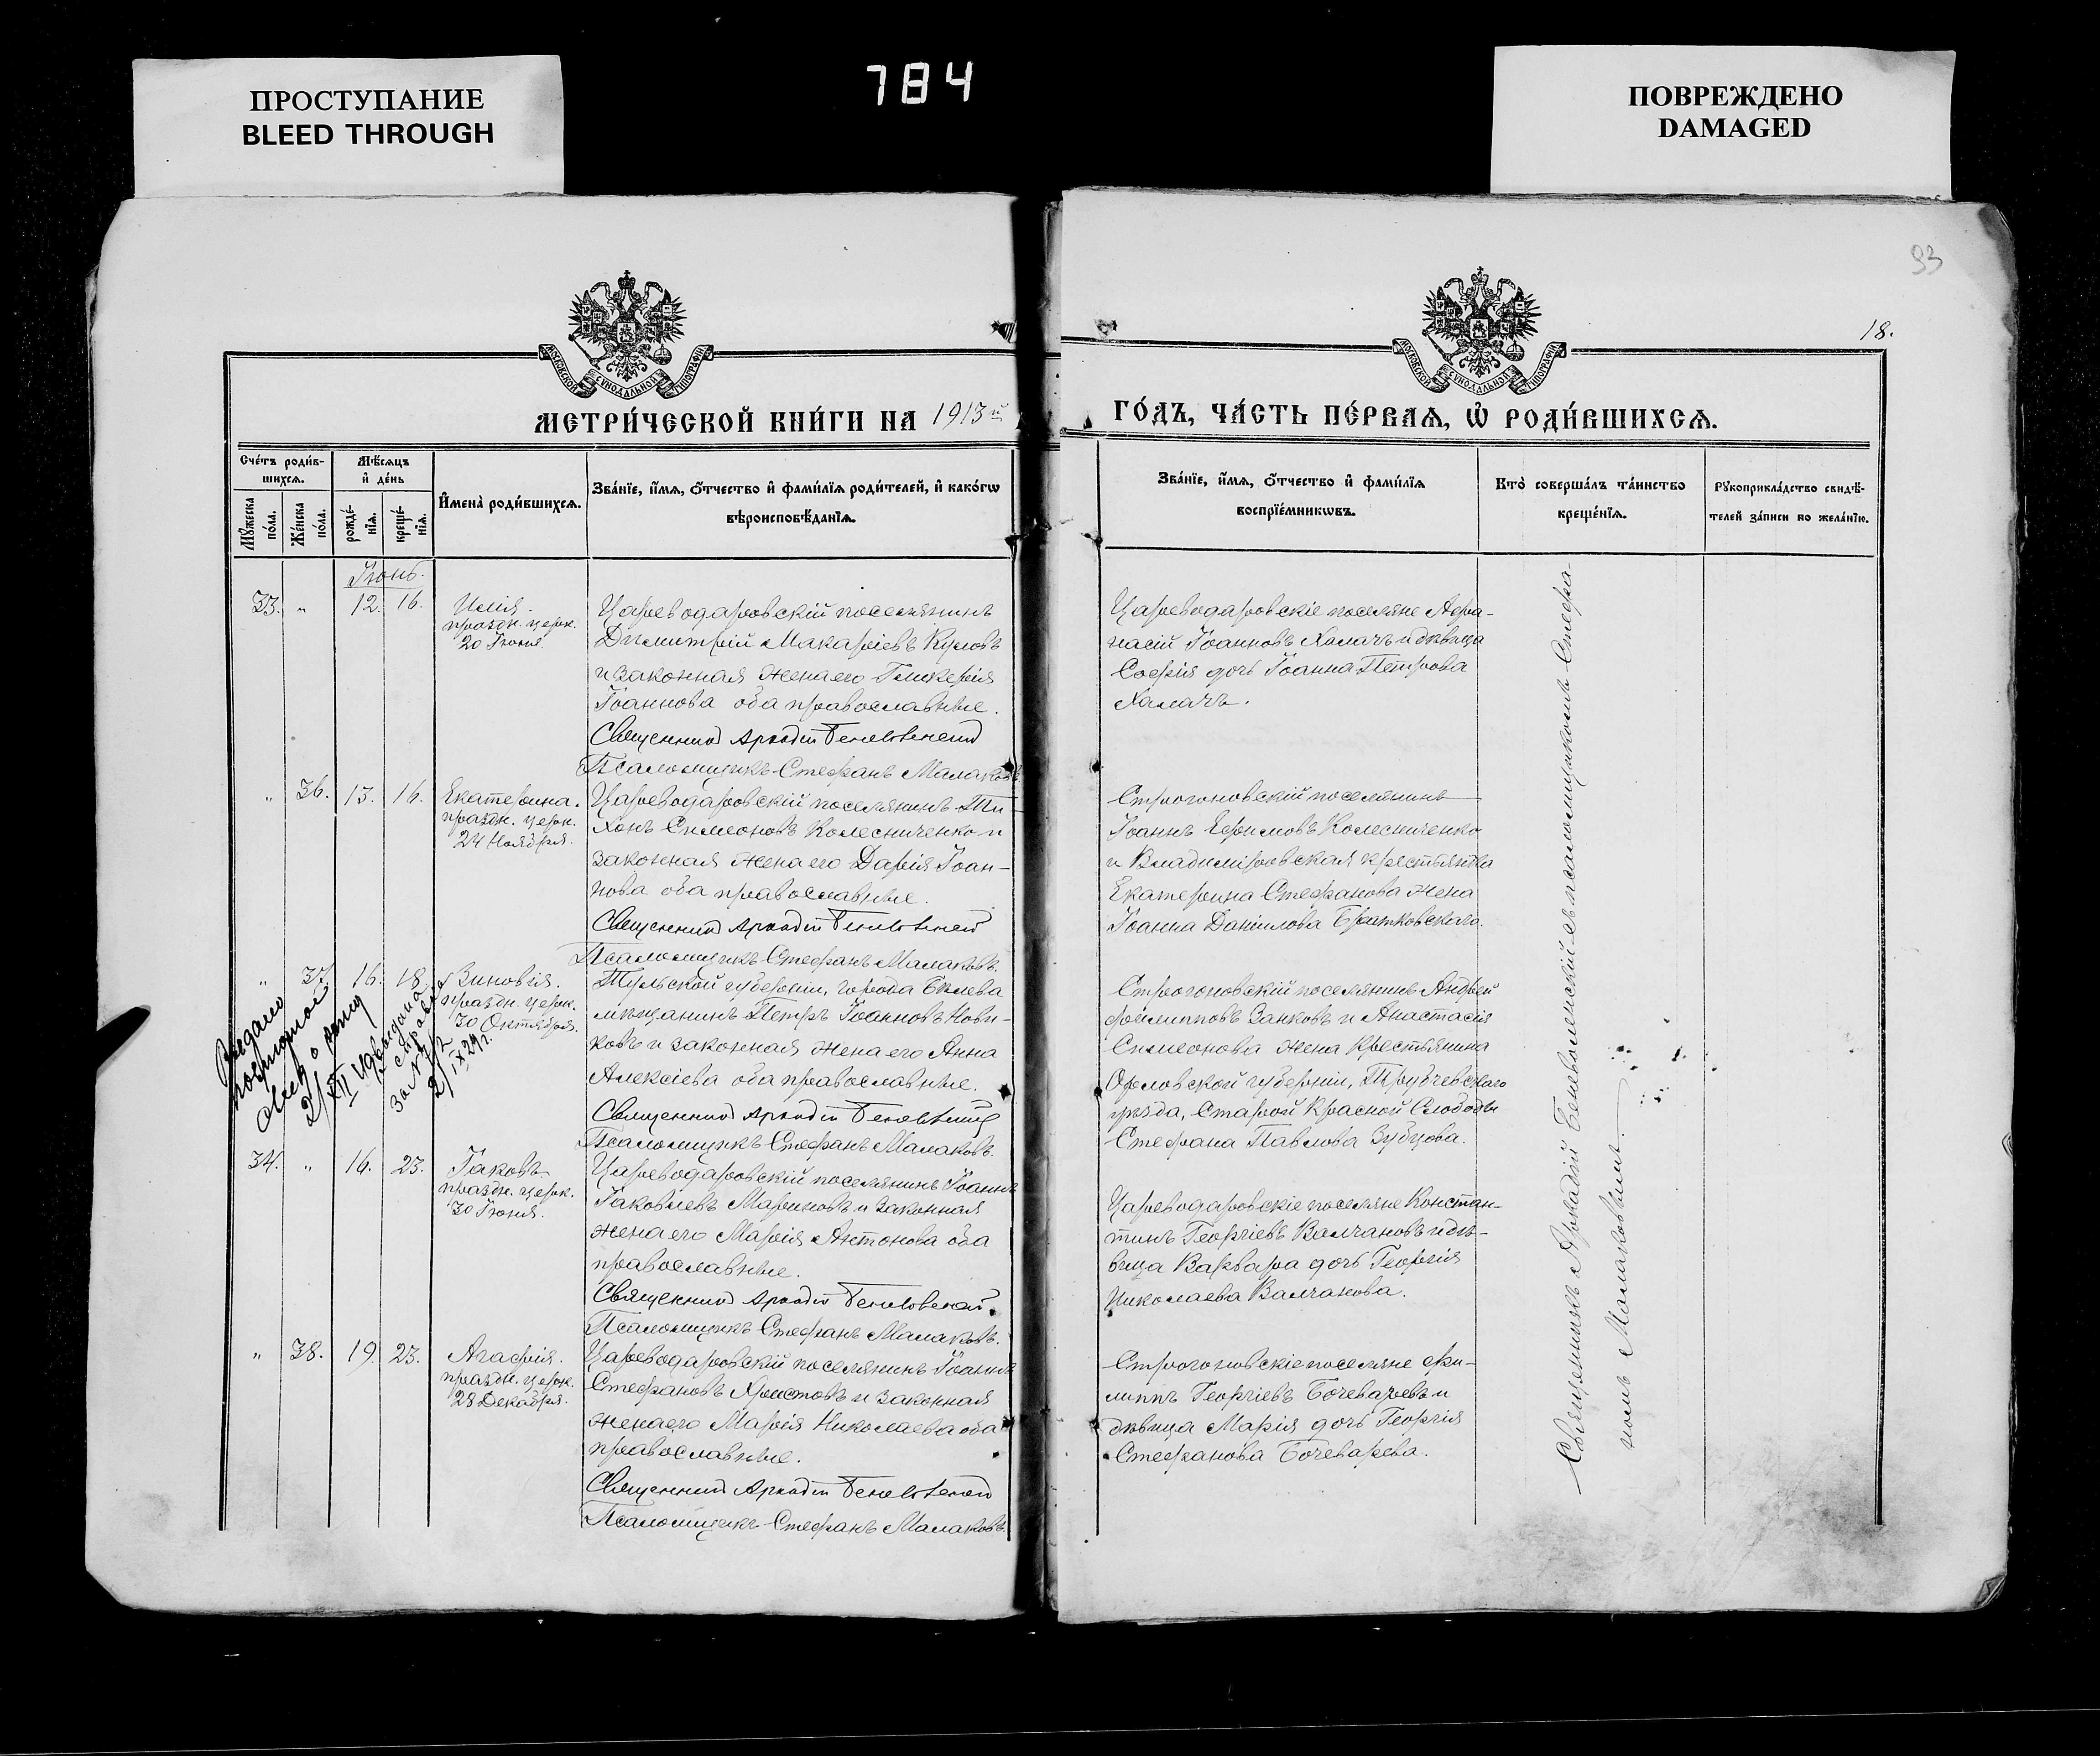 ПРОСТУПАНИЕ
BLEED THROUGH
784
ПОВРЕЖДЕНО
DAMAGED
93
18.
МОСКОВСКОЙ СѴНОДАЛЬНОЙ ТИПОГРАФІИ
МОСКОВСКОЙ СѴНОДАЛЬНОЙ ТИПОГРАФІИ
МЕТРИ́ЧЕСКОЙ КНИ́ГИ НА 1913й
ГО́ДЪ, ЧА́СТЬ ПЕ́РВАѦ, Ѡ҆ РОДИ́ВШИХСѦ.
Сче́тъ роди́в-
шихсѧ.
Мѹ́жеска
по́ла.
Же́нска
по́ла.
Мѣ́сѧцъ
и҆ де́нь
рожде́-
нїѧ.
креще́-
нїѧ.
И҆мена̀ роди́вшихсѧ.
Зва́нїе, и҆́мѧ, ѻ҆́тчество и҆ фами́лїѧ роди́телей, и҆ како́гѡ
вѣроисповѣ́данїѧ.
Зва́нїе, и҆́мѧ, ѻ҆́тчество и҆ фами́лїѧ
воспрїе́мникѡвъ.
Кто̀ соверша́лъ та́инство
креще́нїѧ.
Рѹкоприкла́дство свидѣ́-
телей за́писи по жела́нїю.
Іюнь.
33. " 12. 16.
Илія.
праздн. церк.
20 Іюля.
Цареводаровскій поселянинъ
Димитрій Макаріевъ Куловъ
и законная жена его Гликерія
Іоаннова оба православные.
Священникъ Аркадій Беневоленскій
Псаломщикъ Стефанъ Малаковъ
Цареводаровскіе поселяне Афа-
насій Іоанновъ Халачъ и дѣвица
Софія дочь Іоанна Петрова
Халачъ.
" 36. 13. 16.
Екатерина.
праздн. церк.
24 Ноября.
Цареводаровскій поселянинъ Ти-
хонъ Симеоновъ Колесниченко и
законная жена его Дарія Іоан-
нова оба православные.
Священникъ Аркадій Беневоленскій
Псаломщикъ Стефанъ Малаковъ.
Строгоновскій поселянинъ
Іоаннъ Ефимовъ Колесниченко
и Владиміровская крестьянка
Екатерина Стефанова жена
Іоанна Даніилова Братковскаго.
" 37. 16. 18.
Зиновія.
праздн. церк.
30 Октября.
Тульской губерніи, города Бѣлева
мѣщанинъ Петръ Іоанновъ Нови-
ковъ и законная жена его Анна
Алексіева оба православные.
Священникъ Аркадій Беневоленскій
Псаломщикъ Стефанъ Малаковъ.
Строгоновскій поселянинъ Андрей
Филипповъ Занковъ и Анастасія
Симеонова жена крестьянина
Орловской губерніи, Трубчевскаго
уѣзда, Старой Красной Слободы
Стефана Павлова Зубцова.
выдана
справка
за №
2/IX 29 г.
34. " 16. 23.
Іаковъ.
праздн. церк.
30 Іюня.
Цареводаровскій поселянинъ Іоаннъ
Іаковлевъ Мариновъ и законная
жена его Марія Антонова оба
православные.
Священникъ Аркадій Беневоленскій
Псаломщикъ Стефанъ Малаковъ.
Цареводаровскіе поселяне Констан-
тинъ Георгіевъ Валчановъ и дѣ-
вица Варвара дочь Георгія
Николаева Валчанова.
" 38. 19. 23.
Агафія.
праздн. церк.
28 Декабря.
Цареводаровскій поселянинъ Іоаннъ
Стефановъ Христовъ и законная
жена его Марія Николаева оба
православные.
Священникъ Аркадій Беневоленскій
Псаломщикъ Стефанъ Малаковъ.
Строгоновскіе поселяне Фи-
липпъ Георгіевъ Бочеваревъ и
дѣвица Марія дочь Георгія
Стефанова Бочеварева.
Священникъ Аркадій Беневоленскій съ псаломщикомъ Стефа-
номъ Малаковымъ.